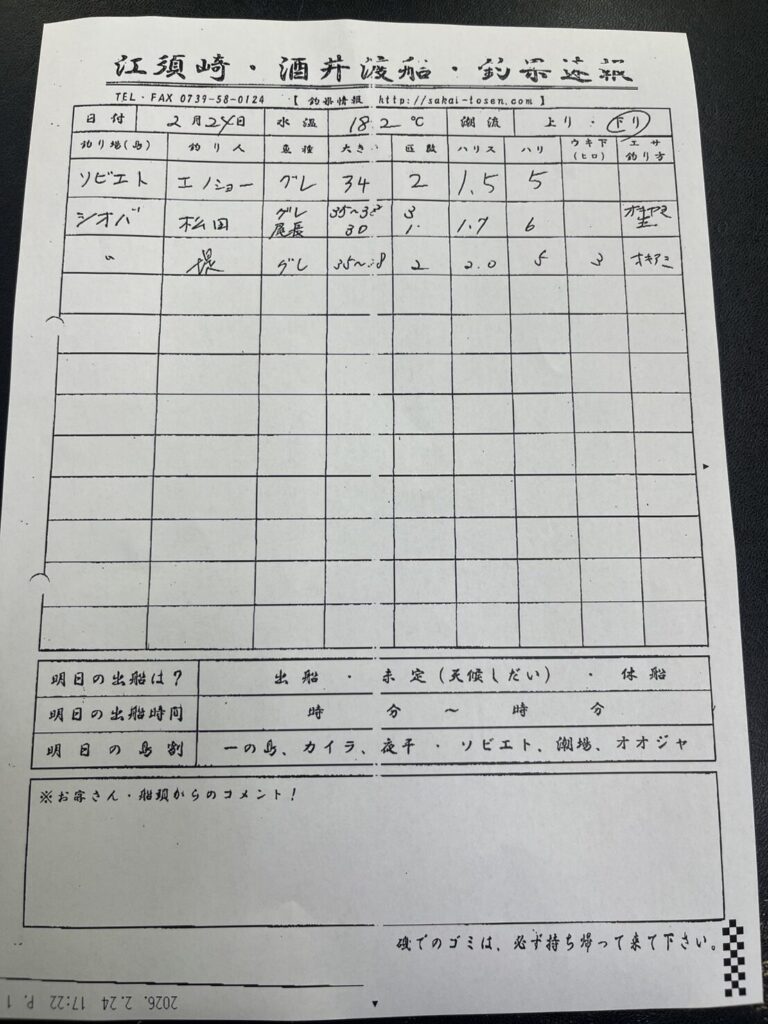 江須崎・酒井渡船・釣果速報
TEL・FAX 0739-58-0124 【釣船情報 http://sakai-tosen.com】
日付 2月24日 水温 18.2℃ 潮流 上り・下り
釣り場(島) 釣り人 魚種 大きい 匹数 ハリス ハリ ウキ下(ヒロ) エサ釣り方
ソビエト エノショー グレ 34 2 1.5 5
シオバ 松田 グレ 35〜38 3 1.7 6 オキアミ
尾長 30 1
〃 堤 グレ 35〜38 2 2.0 5 3 オキアミ
明日の出船は? 出船・未定(天候しだい)・休船
明日の出船時間 時 分 〜 時 分
明日の島割 一の島、カイラ、夜平・ソビエト、潮場、オオジャ
※お客さん・船頭からのコメント!
磯でのゴミは、必ず持ち帰って来て下さい。
2026. 2.24 17:22 P. 1